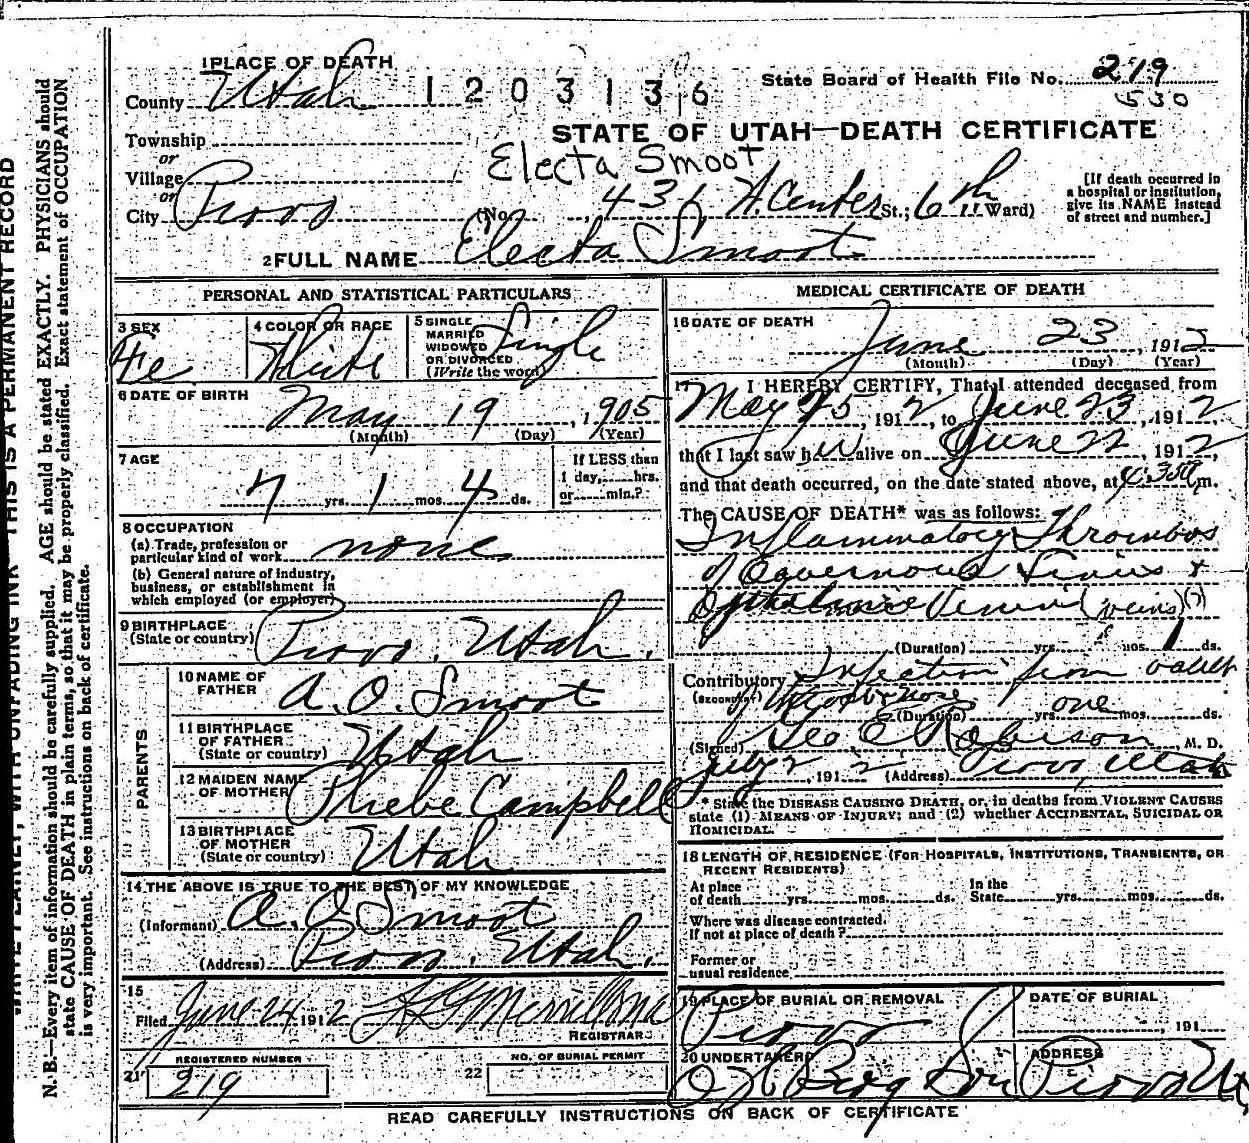 1 PLACE OF DEATH
County Utah
1203136
State Board of Health File No. 219
530
Township
or
Village
or
City Provo
STATE OF UTAH—DEATH CERTIFICATE
Electa Smoot
(No. 436 W. Center St.; 6th Ward)
[If death occurred in
a hospital or institution,
give its NAME instead
of street and number.]
2 FULL NAME Electa Smoot
PERSONAL AND STATISTICAL PARTICULARS
3 SEX
Fe
4 COLOR OR RACE
White
5 SINGLE
MARRIED
WIDOWED
OR DIVORCED
(Write the word)
Single
6 DATE OF BIRTH
May 19, 1905
(Month) (Day) (Year)
7 AGE
7 yrs. 1 mos. 4 ds.
If LESS than
1 day, hrs.
or min.?
8 OCCUPATION
(a) Trade, profession or
particular kind of work none
(b) General nature of industry,
business, or establishment in
which employed (or employer)
9 BIRTHPLACE
(State or country) Provo, Utah.
PARENTS
10 NAME OF
FATHER A. O. Smoot
11 BIRTHPLACE
OF FATHER
(State or country) Utah
12 MAIDEN NAME
OF MOTHER Phebe Campbell
13 BIRTHPLACE
OF MOTHER
(State or country) Utah
14 THE ABOVE IS TRUE TO THE BEST OF MY KNOWLEDGE
(Informant) A. O. Smoot
(Address) Provo, Utah.
15
Filed June 24 1912
REGISTRAR
REGISTERED NUMBER
21 219
NO. OF BURIAL PERMIT
22
MEDICAL CERTIFICATE OF DEATH
16 DATE OF DEATH
June 23, 1912
(Month) (Day) (Year)
17 I HEREBY CERTIFY, That I attended deceased from
May 25, 1912, to June 23, 1912,
that I last saw her alive on June 22, 1912,
and that death occurred, on the date stated above, at 4:30 m.
The CAUSE OF DEATH* was as follows:
Inflammatory Thrombos
of Sinus +
(veins) (?)
(Duration) yrs. mos. 1 ds.
Contributory Infection from
(SECONDARY) of nose
(Duration) yrs. one mos. ds.
(Signed) Geo E Robison, M. D.
July 2, 1912 (Address) Provo, Utah
* State the DISEASE CAUSING DEATH, or, in deaths from VIOLENT CAUSES
state (1) MEANS OF INJURY; and (2) whether ACCIDENTAL, SUICIDAL OR
HOMICIDAL.
18 LENGTH OF RESIDENCE (FOR HOSPITALS, INSTITUTIONS, TRANSIENTS, OR
RECENT RESIDENTS)
At place
of death yrs. mos. ds.
In the
State yrs. mos. ds.
Where was disease contracted,
If not at place of death?
Former or
usual residence
19 PLACE OF BURIAL OR REMOVAL
Provo
DATE OF BURIAL
, 191
20 UNDERTAKER
Berg Son
ADDRESS
Provo Ut
READ CAREFULLY INSTRUCTIONS ON BACK OF CERTIFICATE
THIS IS A PERMANENT RECORD
N. B.—Every item of information should be carefully supplied. AGE should be stated EXACTLY. PHYSICIANS should
state CAUSE OF DEATH in plain terms, so that it may be properly classified. Exact statement of OCCUPATION
is very important. See instructions on back of certificate.